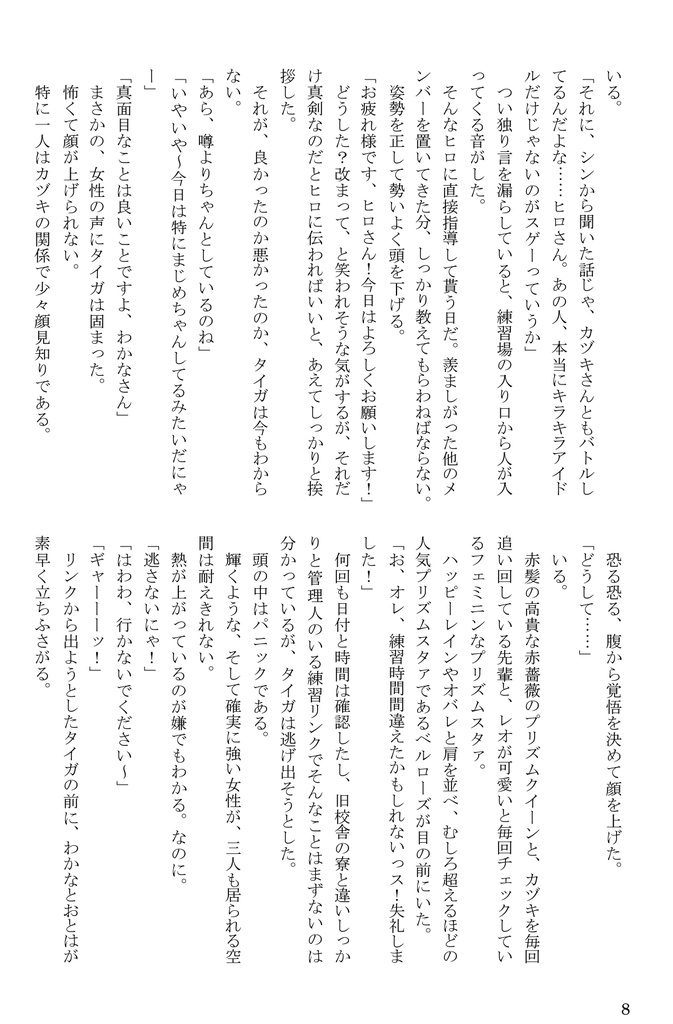 いる。
「それに、シンから聞いた話じゃ、カヅキさんともバトルし
てるんだよな……ヒロさん。あの人、本当にキラキラアイド
ルだけじゃないのがスゲーっていうか」
つい独り言を漏らしていると、練習場の入り口から人が入
ってくる音がした。
そんなヒロに直接指導して貰う日だ。羨ましがった他のメ
ンバーを置いてきた分、しっかり教えてもらわねばならない。
姿勢を正して勢いよく頭を下げる。
「お疲れ様です、ヒロさん！今日はよろしくお願いします！」
どうした？改まって、と笑われそうな気がするが、それだ
け真剣なのだとヒロに伝わればいいと、あえてしっかりと挨
拶した。
それが、良かったのか悪かったのか、タイガは今もわから
ない。
「あら、噂よりちゃんとしているのね」
「いやいや～今日は特にまじめちゃんしてるみたいだにゃ
ー」
「真面目なことは良いことですよ、わかなさん」
まさかの、女性の声にタイガは固まった。
怖くて顔が上げられない。
特に一人はカヅキの関係で少々顔見知りである。
恐る恐る、腹から覚悟を決めて顔を上げた。
「どうして……」
いる。
赤髪の高貴な赤薔薇のプリズムクイーンと、カヅキを毎回
追い回している先輩と、レオが可愛いと毎回チェックしてい
るフェミニンなプリズムスタァ。
ハッピーレインやオバレと肩を並べ、むしろ超えるほどの
人気プリズムスタァであるベルローズが目の前にいた。
「お、オレ、練習時間間違えたかもしれないっス！失礼しま
した！」
何回も日付と時間は確認したし、旧校舎の寮と違いしっか
りと管理人のいる練習リンクでそんなことはまずないのは
分かっているが、タイガは逃げ出そうとした。
頭の中はパニックである。
輝くような、そして確実に強い女性が、三人も居られる空
間は耐えきれない。
熱が上がっているのが嫌でもわかる。なのに。
「逃さないにゃ！」
「はわわ、行かないでください～」
「ギャーーーッ！」
リンクから出ようとしたタイガの前に、わかなとおとはが
素早く立ちふさがる。
8